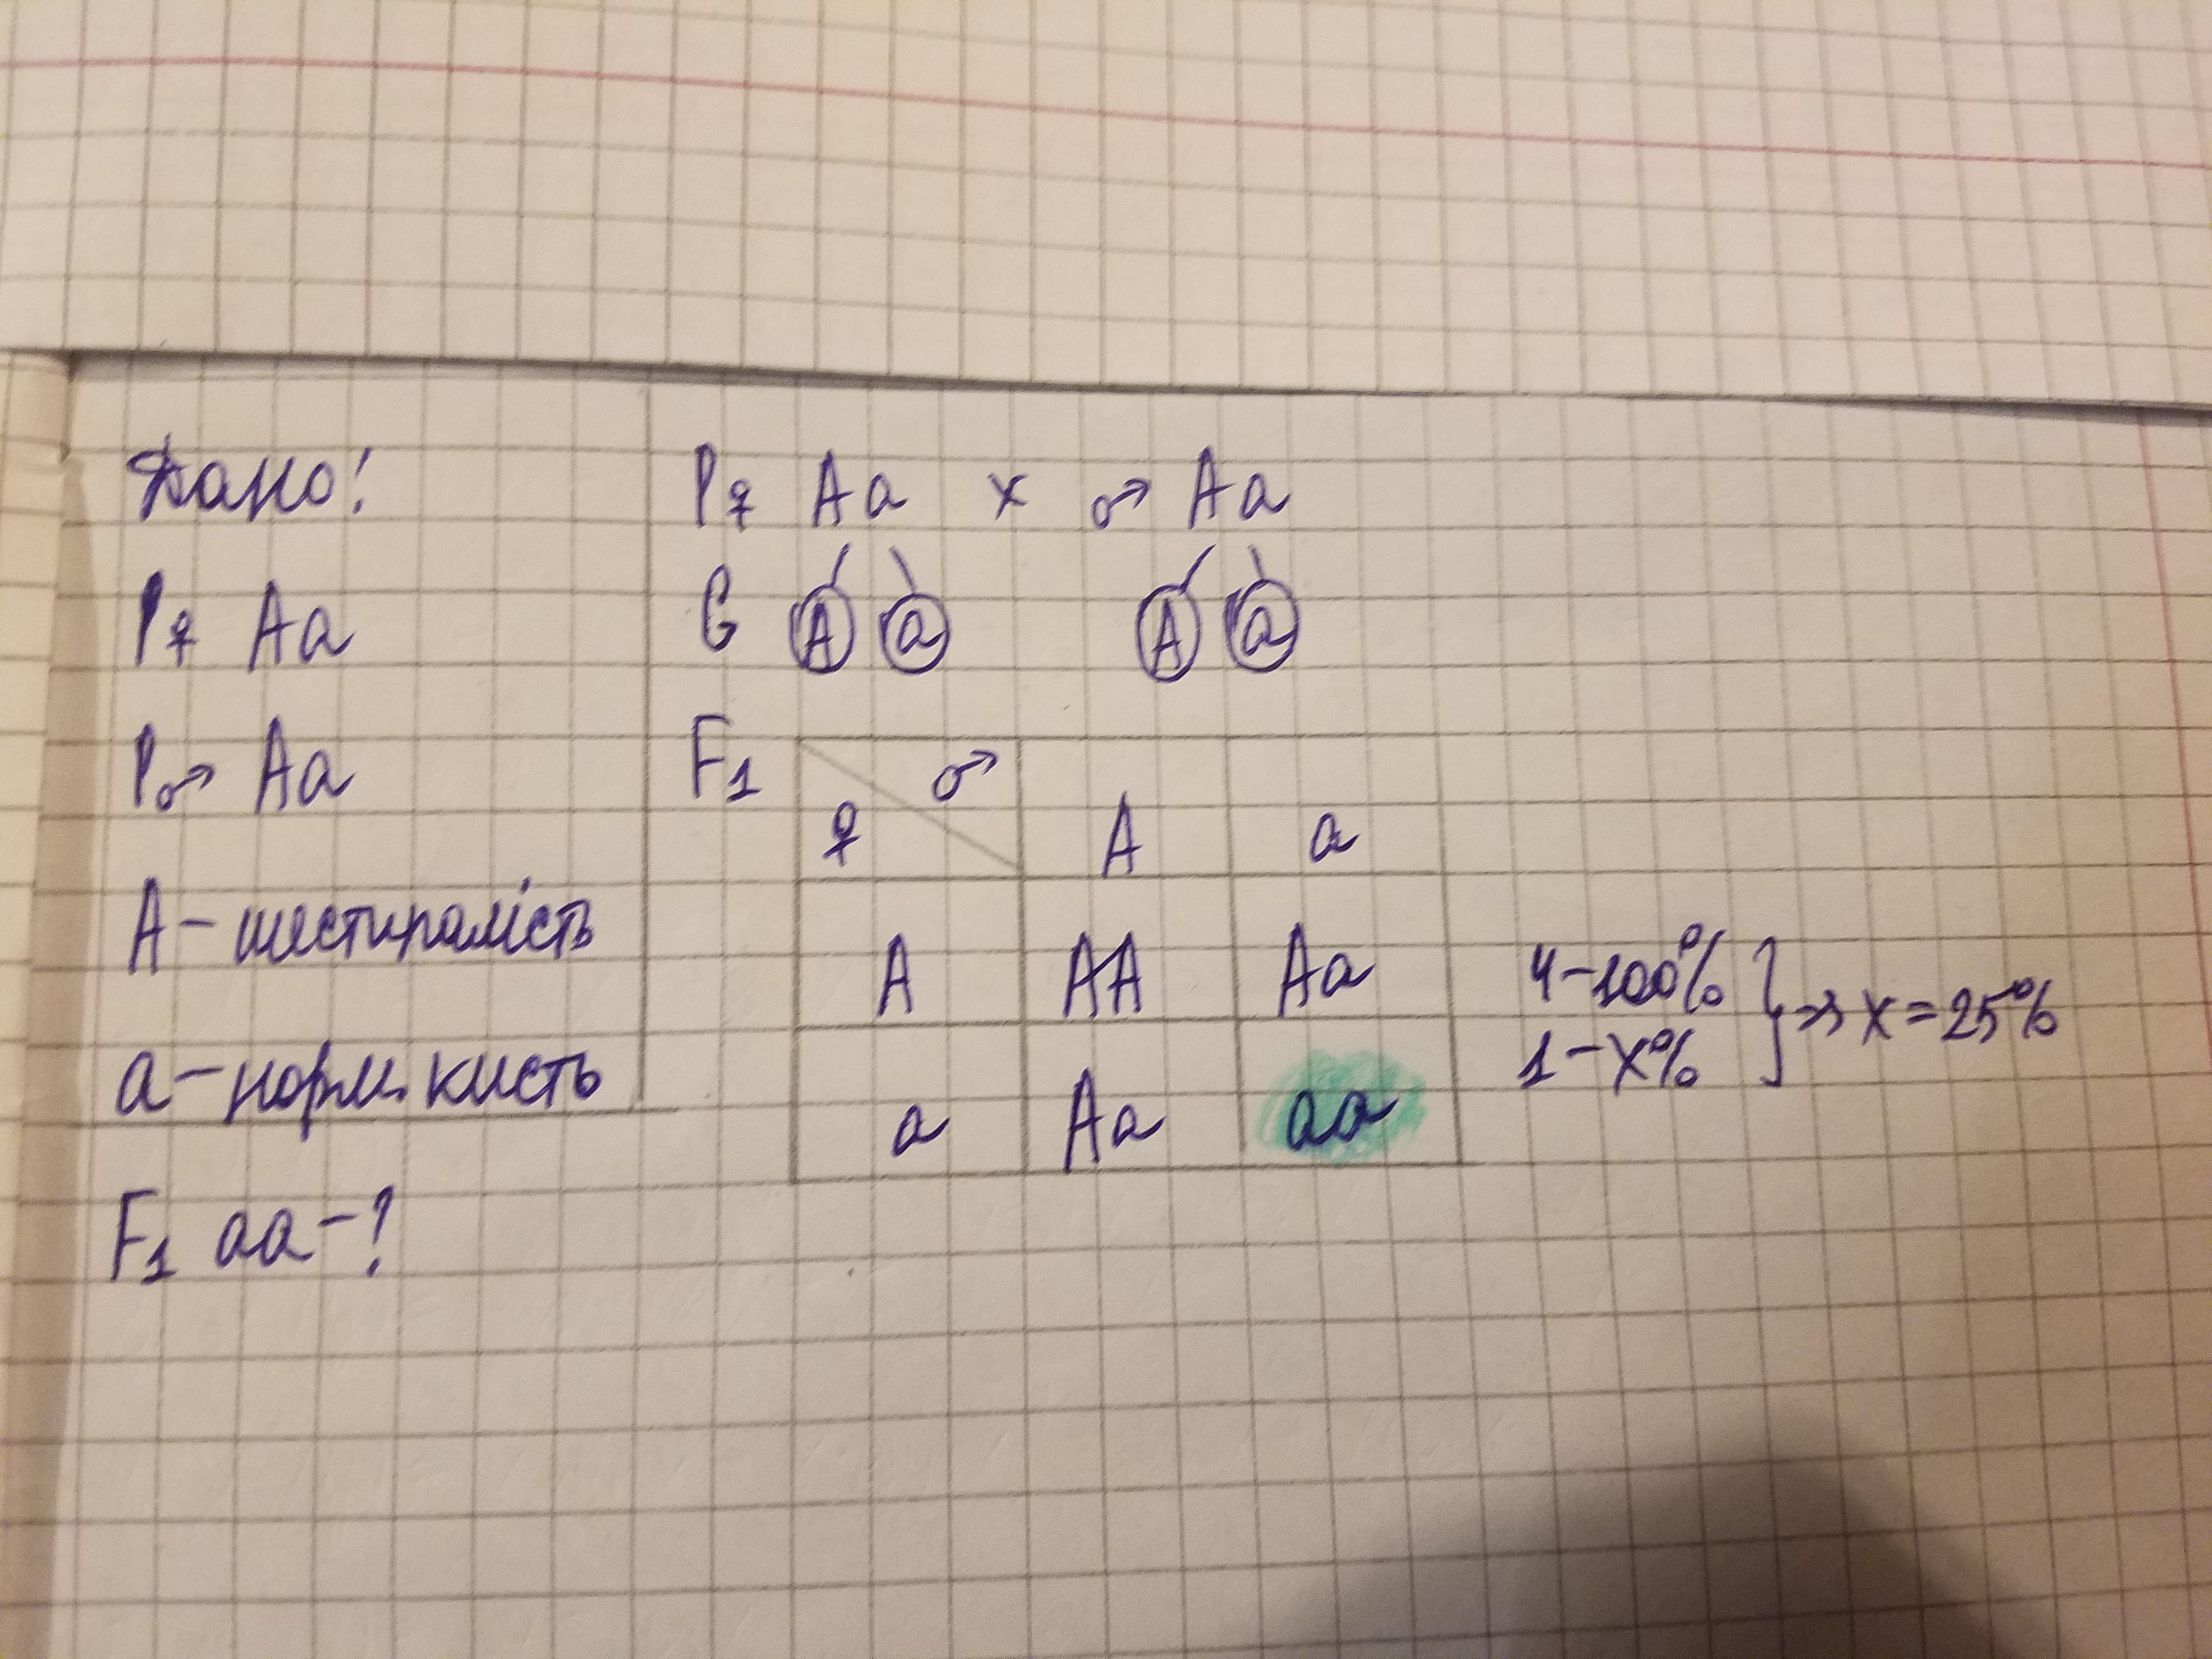 Дано:
P♀ Aa
P♂ Aa
A – шестипалість
a – норм. кисть
F1 aa – ?
P♀ Aa x ♂ Aa
G A a A a
F1 ♀ ♂ A a
A AA Aa
a Aa aa
4 – 100%
1 – x% } => x = 25%